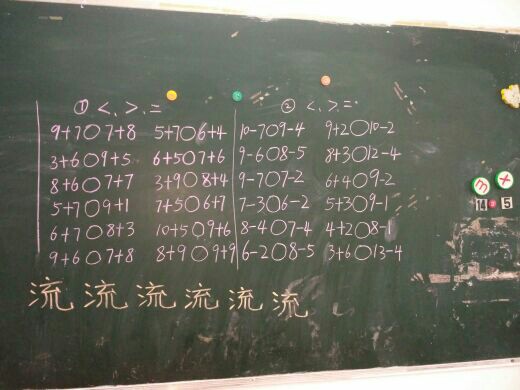 ① <、>、= ② <、>、=
9+7○7+8 5+7○6+4 10-7○9-4 9+2○10-2
3+6○9+5 6+5○7+6 9-6○8-5 8+3○12-4
8+6○7+7 3+9○8+4 9-7○7-2 6+4○9-2
5+7○9+1 7+5○6+7 7-3○6-2 5+3○9-1
6+7○8+3 10+5○9+6 8-4○7-4 4+2○8-1
9+6○7+8 8+9○9+9 6-2○8-5 3+6○13-4
流流流流流流
3 X
14 5